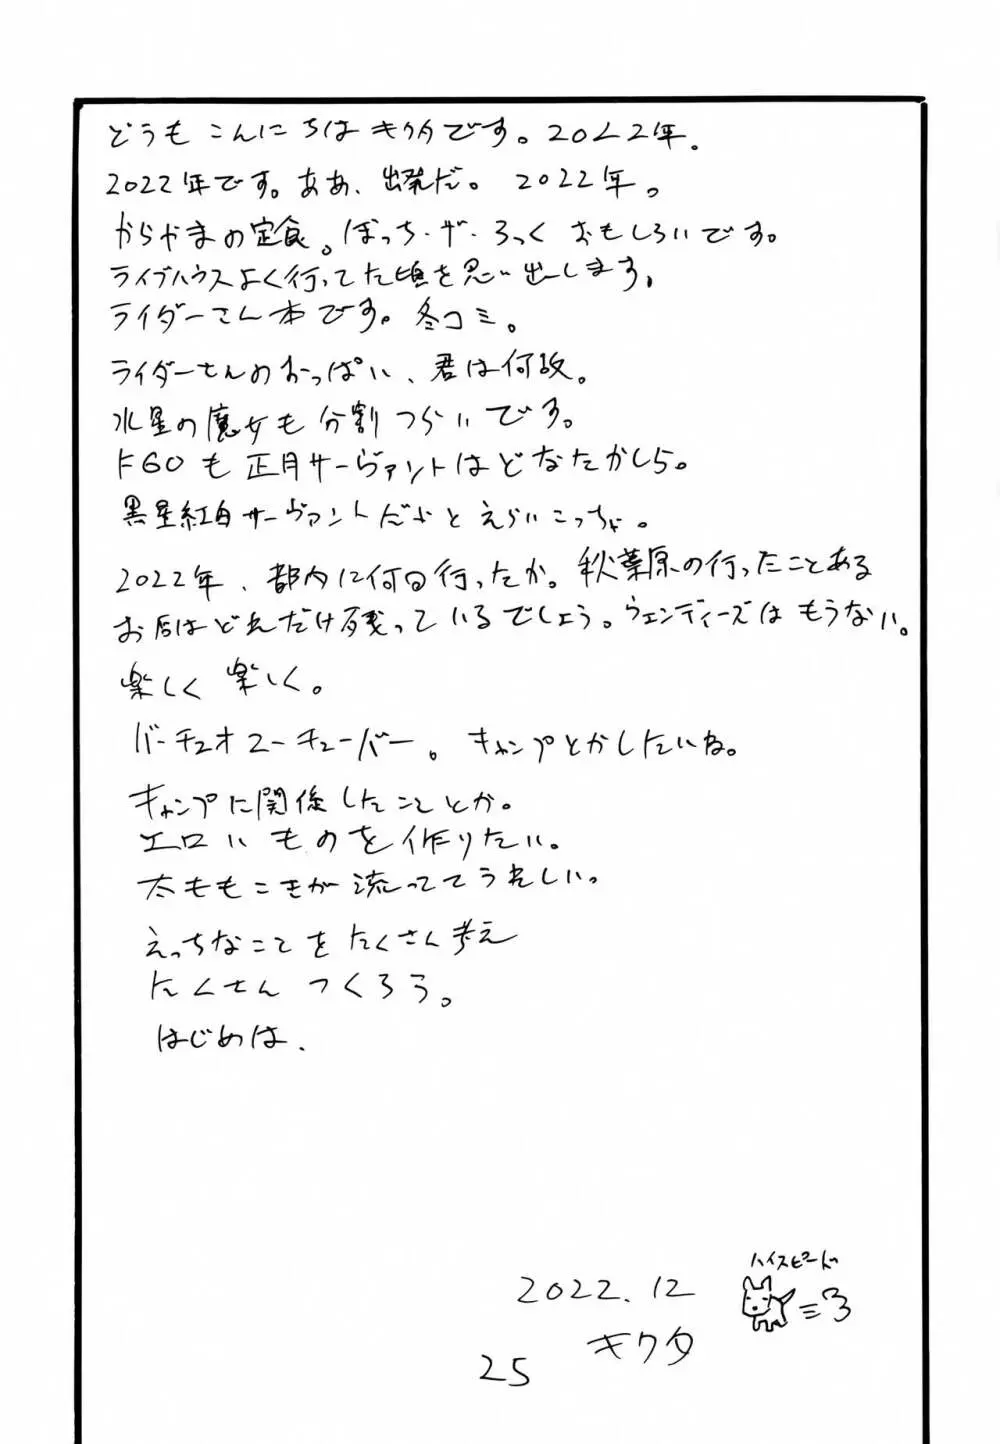 どうも こんにちは キクタです。2022年.
2022年です。ああ、出発だ。2022年。
からやまの定食。ぼっち・ザ・ろっく おもしろいです。
ライブハウスよく行ってた頃を思い出します。
ライダーさん本です。冬コミ。
ライダーさんのおっぱい、君は何故。
水星の魔女も 分割 つらいです。
FGOも 正月サーヴァントは どなたかしら。
黒星紅白サーヴァントだよと えらいこっちゃ。
2022年、都内に何回行ったか。秋葉原の行ったことある
お店はどれだけ残っているでしょう。ウェンディーズは もうない。
楽しく 楽しく。
バーチュオユーチューバー。キャンプとかしたいね。
キャンプに関係したことか。
エロい ものを 作りたい。
太ももこきが 流ってて うれしい。
えっちなことを たくさん 考え
たくさん つくろう。
はじめは、
ハイスピード
2022.12
キクタ
25